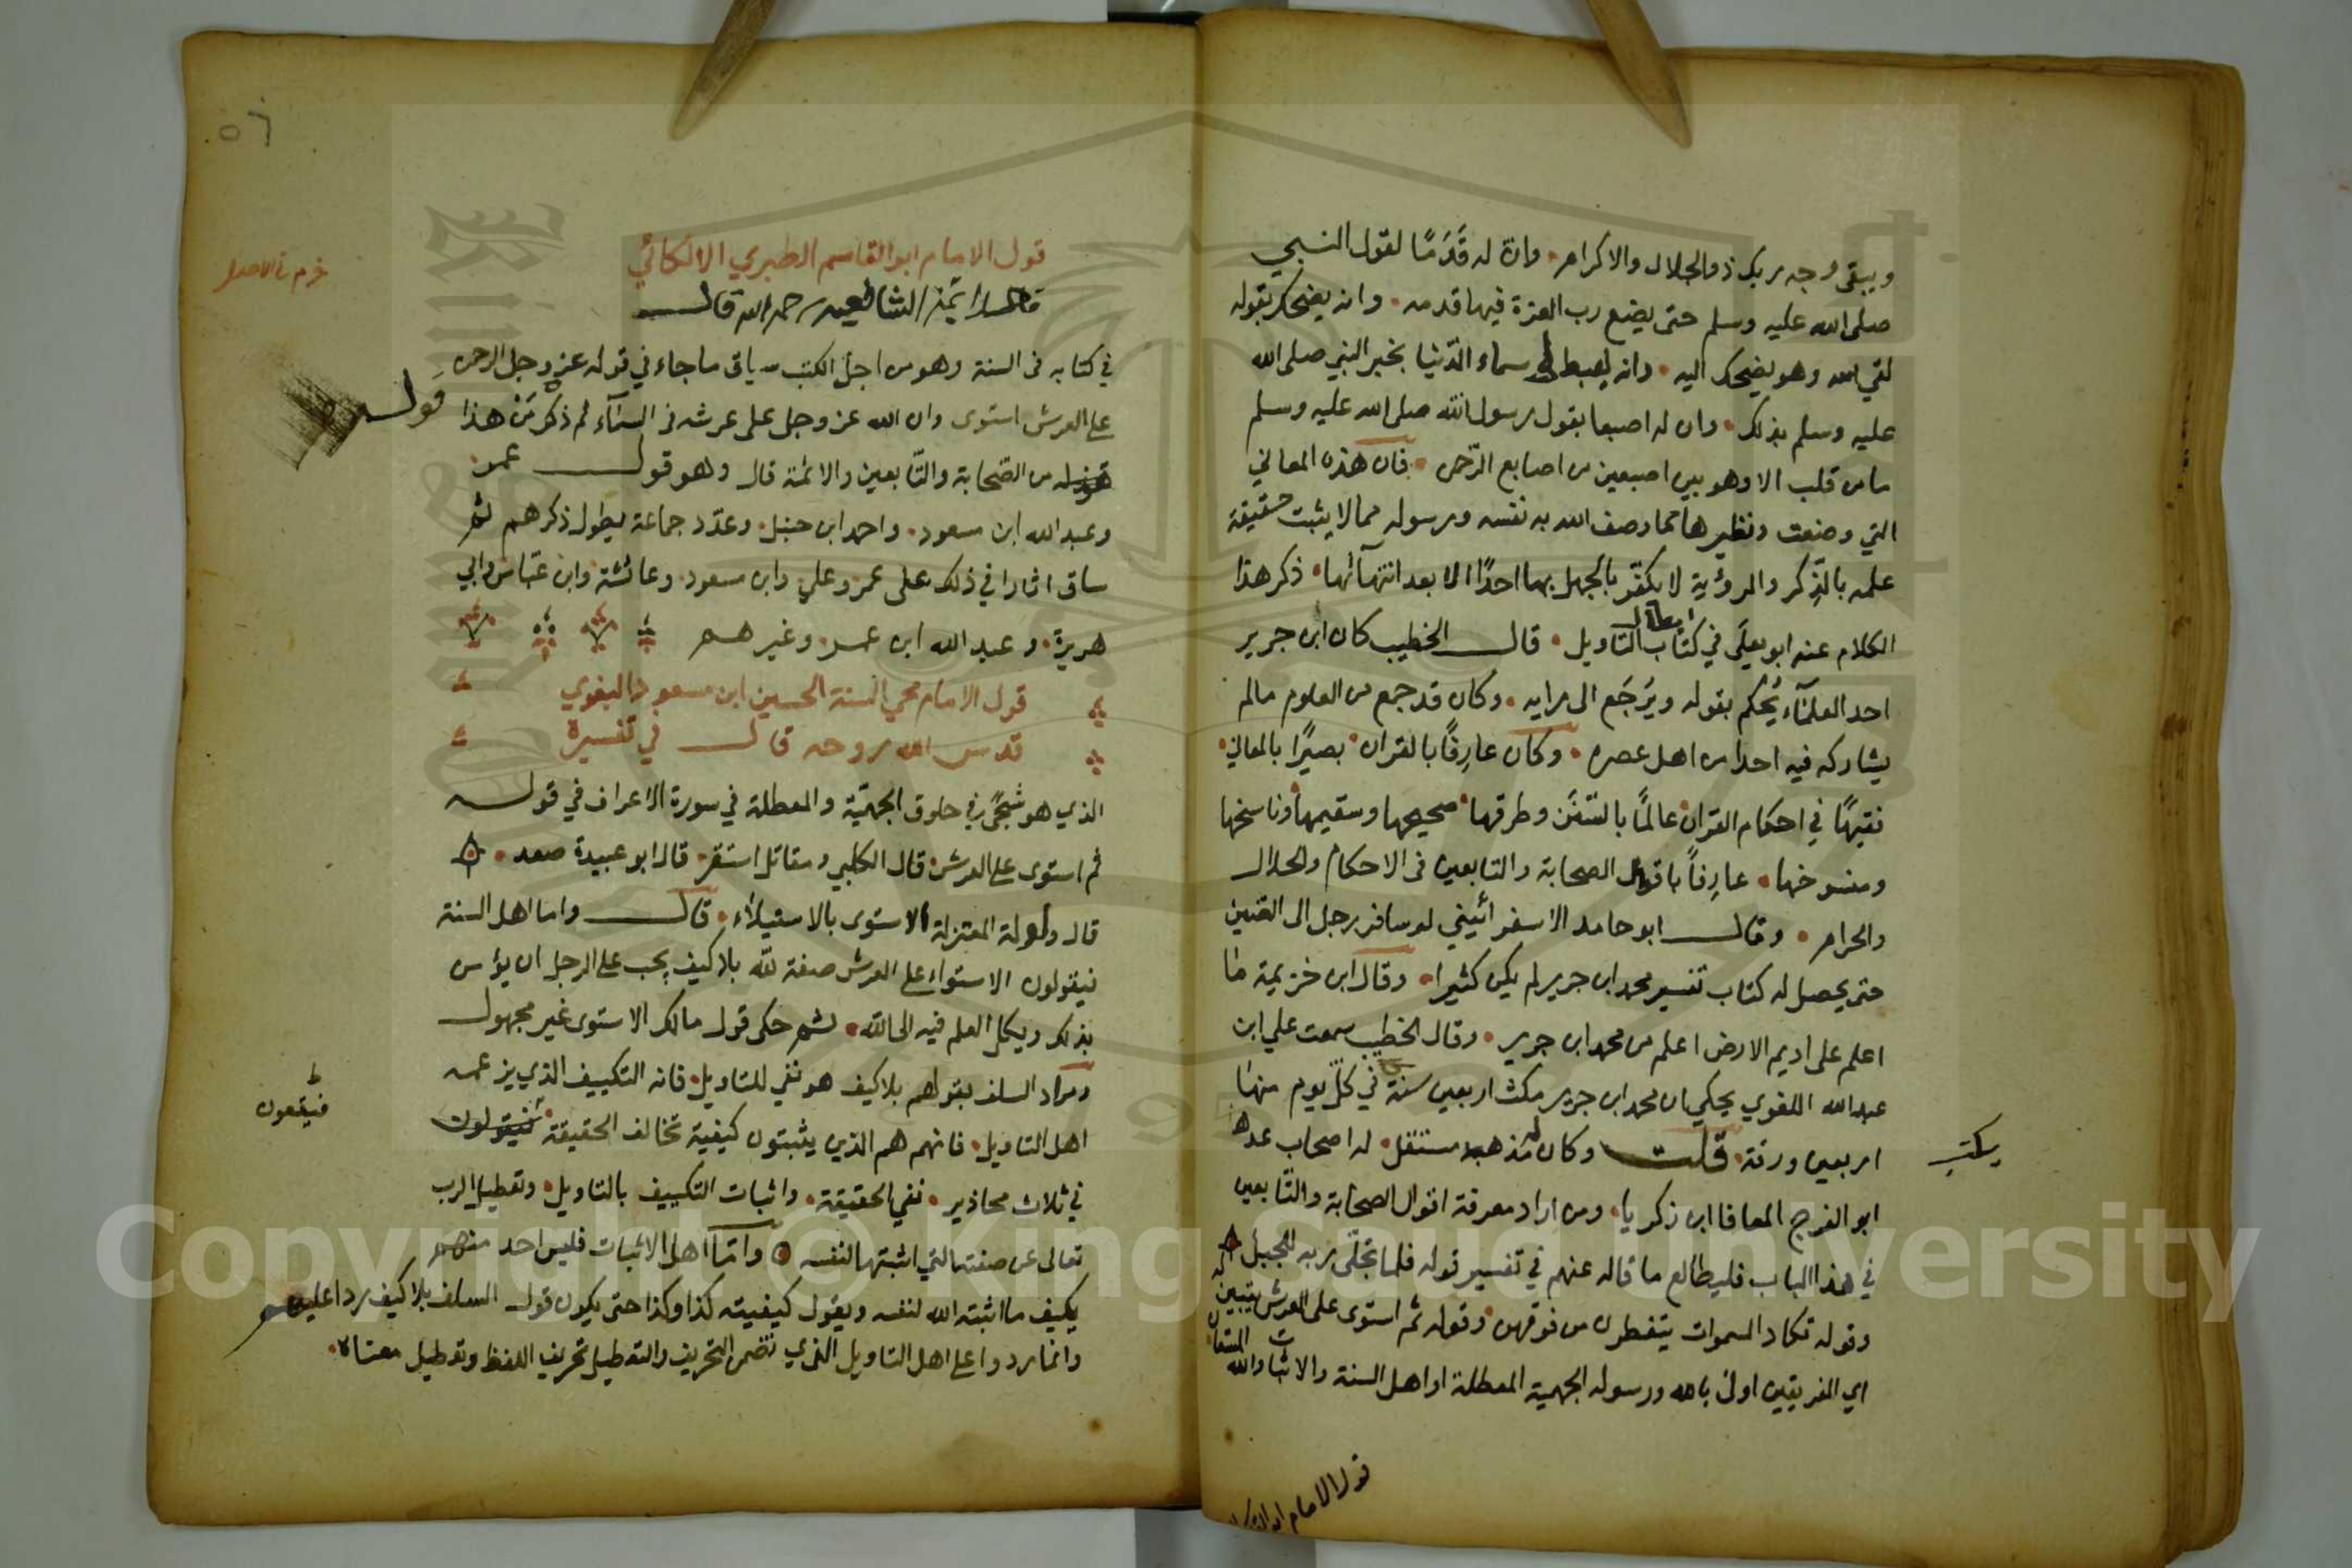 ويبقى وجه ربك ذو الجلال والاكرام وان له قَدَمًا لقول النبي
صلى الله عليه وسلم حتى يضع رب العزة فيها قدمه وانه يضحك بقوله
لقي الله وهو يضحك اليه وانه يهبط الى سماء الدنيا بخبر النبي صلى الله
عليه وسلم بذلك وان له اصبعا بقول رسول الله صلى الله عليه وسلم
ما من قلب الا وهو بين اصبعين من اصابع الرحمن فان هذه المعاني
التي وصفت ونظيرها مما وصف الله به نفسه ورسوله مما لا يثبت حقيقة
علمه بالذكر والرؤية لا يكفر بالجهل بها احدًا الا بعد انتهآئها ذكر هذا
الكلام عنه ابو يعلى في كتاب ابطال التاويل قال الخطيب كان ابن جرير
احد العلمآء يُحكم بقوله ويُرجَع الى رايه وكان قد جمع من العلوم مالم
يشاركه فيه احد من اهل عصره وكان عارِفًا بالقران بصيرًا بالمعاني
فقيهًا في احكام القران عالمًا بالسنن وطرقها صحيحها وسقيمها وناسخها
ومنسوخها عارِفاً باقوال الصحابة والتابعين في الاحكام والحلال
والحرام وقال ابو حامد الاسفرائيني لو سافر رجل الى الصين
حتى يحصل له كتاب تفسير محمد ابن جرير لم يكن كثيرا وقال ابن خزيمة ما
اعلم على اديم الارض اعلم من محمد ابن جرير وقال الخطيب سمعت علي ابن
عبد الله اللغوي يحكي ان محمد ابن جرير مكث اربعين سنة في كلّ يوم منها
يكتب
اربعين ورقة قلت وكان له مذهب مستقل له اصحاب عدة
ابو الفرج المعافا ابن زكريا ومن اراد معرفة اقوال الصحابة والتابعين
في هذا الباب فليطالع ما قاله عنهم في تفسير قوله فلما تجلّى ربه للجبل
وقوله تكاد السموات يتفطرن من فوقهن وقوله ثم استوى على العرش يتبين له
اي الفريقين اولى بالله ورسوله الجهمية المعطلة او اهل السنة والاثبات والله المستعان
قول الامام ابو القاسم
٥٦
قول الامام ابو القاسم الطبري الالكائي
احد ائمة الشافعيه رحمه الله قال
في كتابه في السنة وهو من اجل الكتب سياق ما جاء في قوله عز وجل الرحمن
على العرش استوى وان الله عز وجل على عرشه في السمآء ثم ذكر مَنْ هذا
قوله
قوله من الصحابة والتابعين والائمة قال وهو قول عمر
وعبد الله ابن مسعود واحمد ابن حنبل وعدّد جماعة يطول ذكرهم ثم
ساق اثارا في ذلك على عمر وعلي وابن مسعود وعائشة وابن عباس وابي
هريرة وعبد الله ابن عمر وغيرهم
قول الامام محي السنة الحسين ابن مسعود البغوي
قدس الله روحه قال في تفسيره
الذي هو شجًى في حلوق الجهميّة والمعطلة في سورة الاعراف في قوله
ثم استوى على العرش قال الكلبي ومقاتل استقر قال ابو عبيدة صعد
قال واولة المعتزلة الاستوى بالاستيلاء قال واما اهل السنة
فيقولون الاستواء على العرش صفة لله بلا كيف يجب على الرجل ان يؤمن
بذلك ويكل العلم فيه الى الله ثم حكى قول مالك الاستوى غير مجهول
ومراد السلف بقولهم بلا كيف هو نفي للتاويل فانه التكييف الذي يزعمه
اهل التاويل فانهم هم الذي يثبتون كيفية تخالف الحقيقة فيقولون
فيقعون
في ثلاث محاذير نفي الحقيقة واثبات التكييف بالتاويل وتعطيل الرب
تعالى عن صفته التي اثبتها لنفسه وامّا اهل الاثبات فليس احد منهم
يكيف ما اثبته الله لنفسه ويقول كيفيته كذا وكذا حتى يكون قول السلف بلا كيف ردا عليهم
وانما ردوا على اهل التاويل الذي تضمن التحريف والتعطيل تحريف اللفظ وتعطيل معناه
Copyright © King Saud University